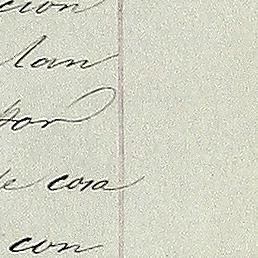 cion
lan
por
de cosa
con